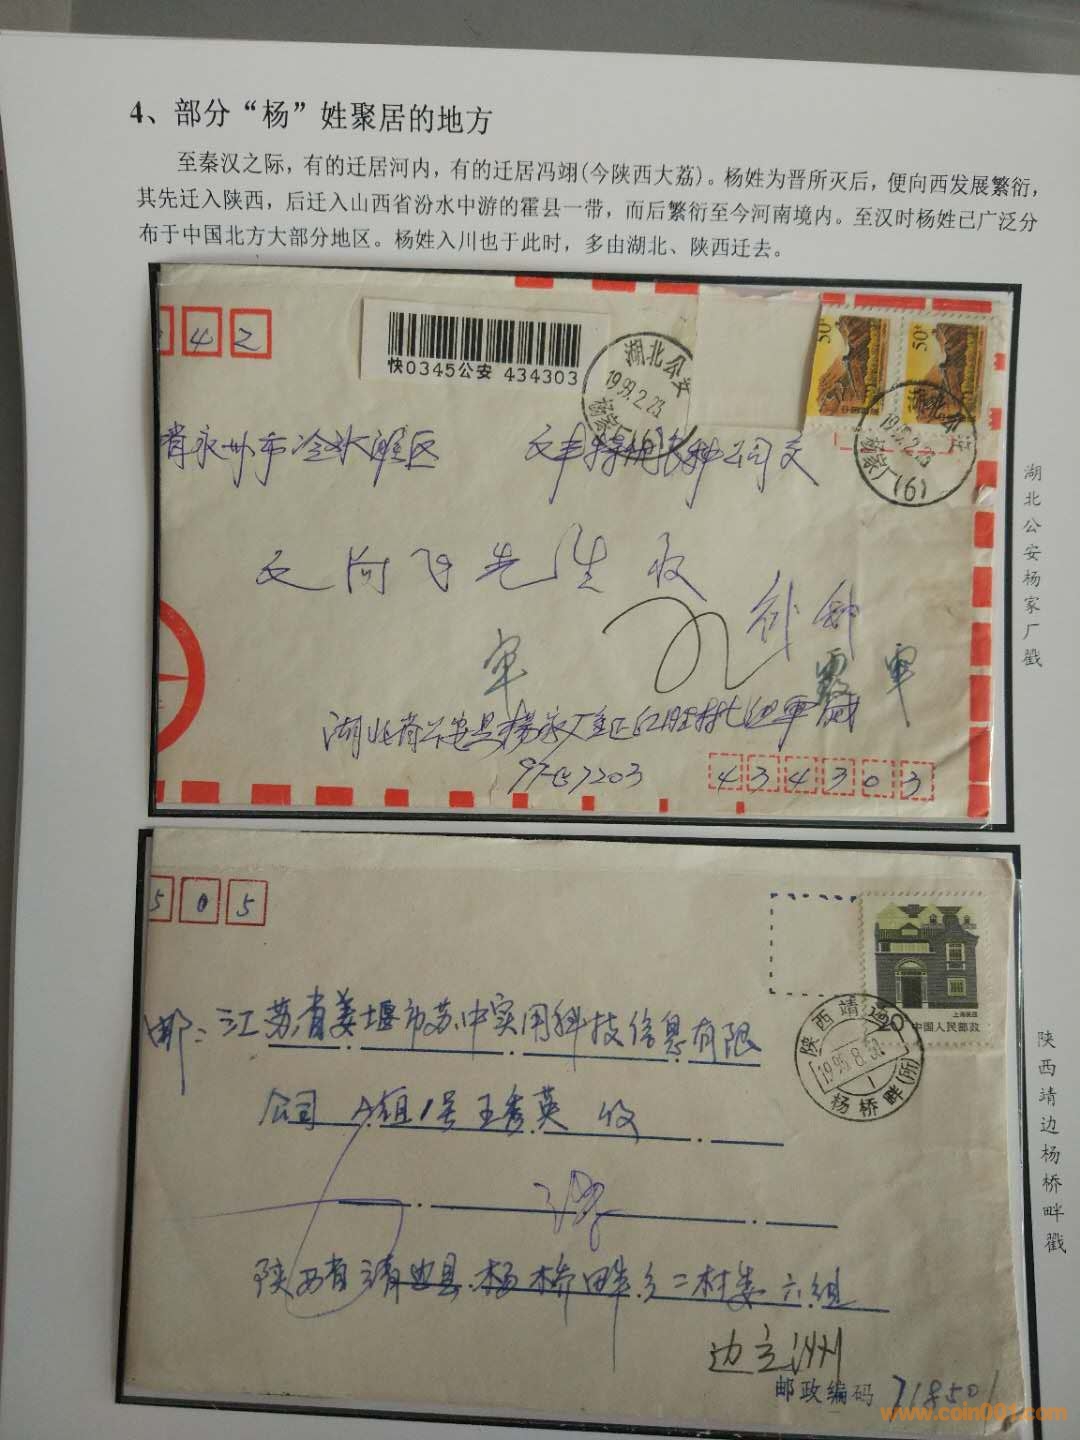 4、部分“杨”姓聚居的地方
至秦汉之际，有的迁居河内，有的迁居冯翊(今陕西大荔)。杨姓为晋所灭后，便向西发展繁衍，
其先迁入陕西，后迁入山西省汾水中游的霍县一带，而后繁衍至今河南境内。至汉时杨姓已广泛分
布于中国北方大部分地区。杨姓入川也于此时，多由湖北、陕西迁去。
42
快0345公安 434303
湖北公安
1999.2.23
杨家厂
50
50
湖北公安
杨家厂(6)
省永州市冷水滩区
先生收
湖北省公安县杨家厂
434303
湖北公安杨家厂戳
505
20
上海民居
中国人民邮政
陕西靖边
1995.8.30
1
杨桥畔(所)
邮：江苏省姜堰市苏中实用科技信息有限
公司 A组1号王秀英 收
陕西省靖边县杨桥畔乡二村委六组
边立洲
邮政编码 718501
陕西靖边杨桥畔戳
www.coin001.com